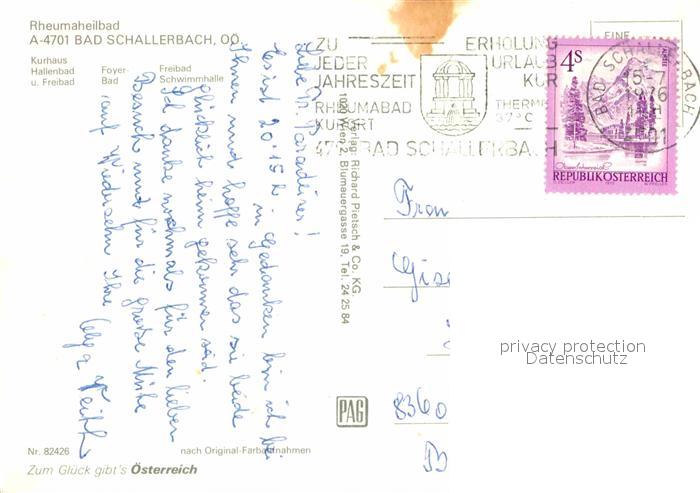 Rheumaheilbad
A-4701 BAD SCHALLERBACH, OÖ.
Kurhaus
Hallenbad
u. Freibad
Foyer-
Bad
Freibad
Schwimmhalle
Liebe N. Paradeiser!
Es ist 20'15 h in Gedanken bin ich bei
Ihnen und hoffe sehr das sie beide
glücklich heim gekommen sind.
Ich danke nochmals für den lieben
Besuch und für die große Mühe
auf Wiedersehn Ihre
Olga
Nr. 82426
nach Original-Farbaufnahmen
Zum Glück gibt's Österreich
Verlag: Richard Pietsch & Co. KG.
1020 Wien 2, Blumauergasse 19, Tel. 24 25 84
PAG
ZU
JEDER
JAHRESZEIT
RHEUMABAD
KURORT
4701 BAD SCHALLERBACH
ERHOLUNG
URLAUB
KUR
THERME
37° C
EINE
4S
REPUBLIK ÖSTERREICH
BAD SCHALLERBACH
Frau
Gise
8360
privacy protection
Datenschutz